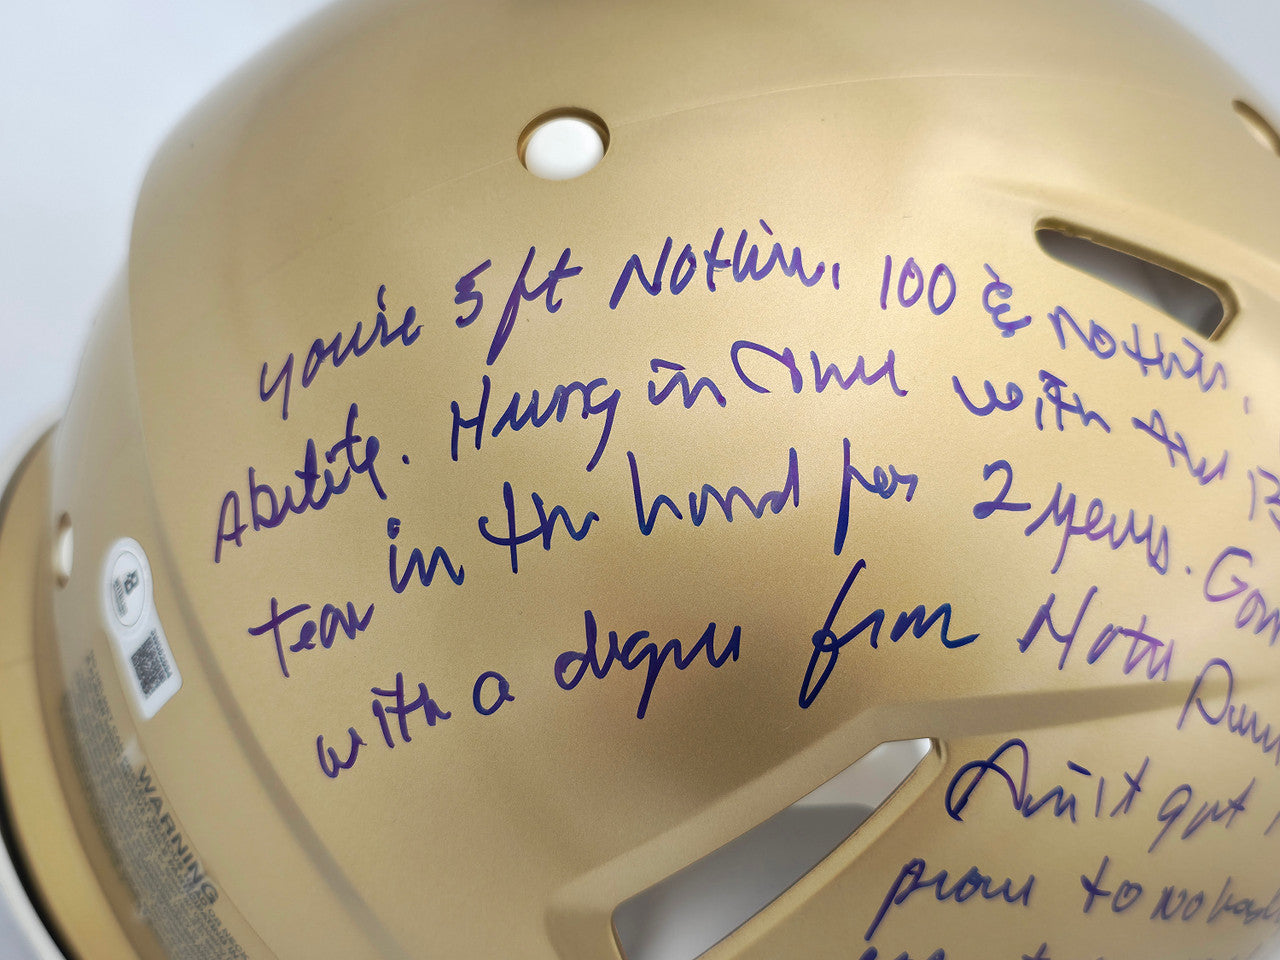 you're 5 ft Nothin, 100 & nothin,
Ability. Hung in there with the B
team in the hand for 2 years. Gon
with a degree from Notre Dam
Ain't got
prove to nobod
WARNING